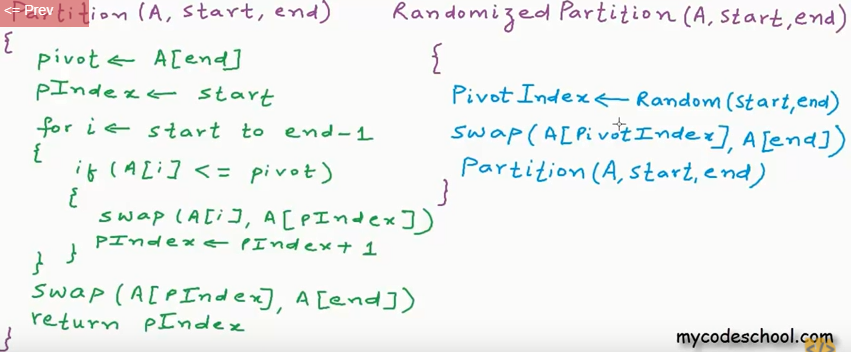 <= Prev
Partition (A, start, end)
{
pivot ← A[end]
pIndex ← start
for i ← start to end-1
{
if (A[i] <= pivot)
{
swap (A[i], A[pIndex])
pIndex ← pIndex + 1
} }
swap (A[pIndex], A[end])
return pIndex
}
Randomized Partition (A, start, end)
{
Pivot Index ← Random (start, end)
swap (A[PivotIndex], A[end])
Partition (A, start, end)
}
mycodeschool.com